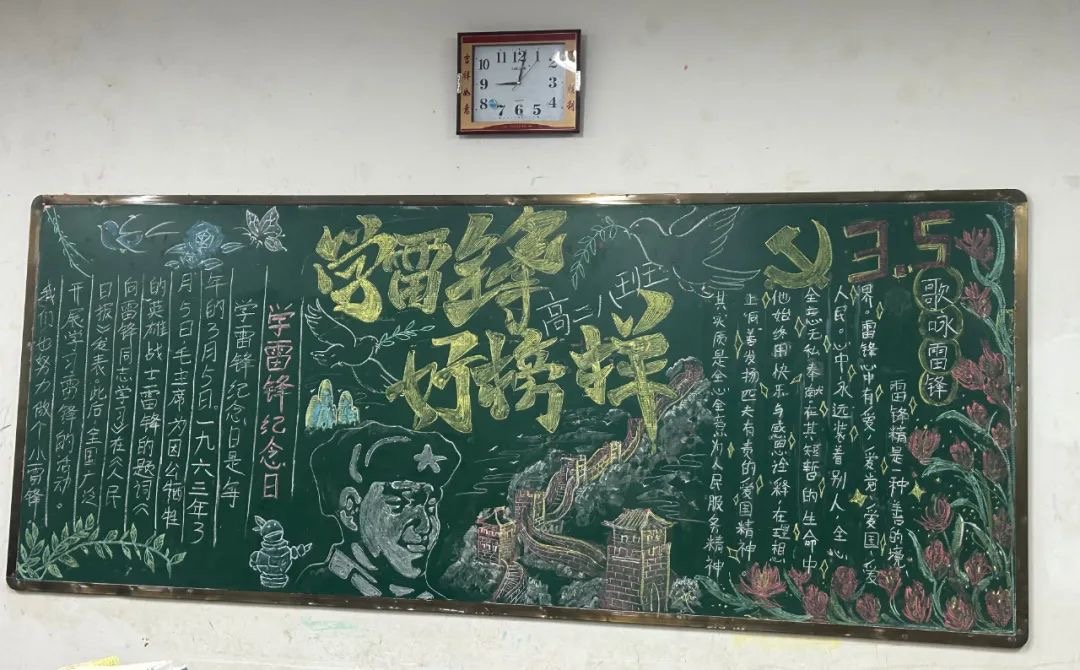 吉祥如意
11 12 1
10 2
9 3
8 4
7 6 5
学雷锋
好榜样
高二八班
3.5
歌咏雷锋
雷锋精是一种善的境
界。雷锋心中有爱，爱党、爱国、爱
人民。心中永远装着别人、全心
全意无私奉献在其短暂的生命中
他始终用快乐与感恩诠释在理想
上着发扬匹夫有责的爱国精神
其实质是全心全意为人民服务精神
学雷锋纪念日
学雷锋纪念日是每
年的3月5日。一九六三年3
月5日毛主席为因公牺牲
的英雄战士雷锋的题词《
向雷锋同志学习》在《人民
日报》发表。此后全国广泛
开展学习雷锋的活动。
我们也努力做个小雷锋